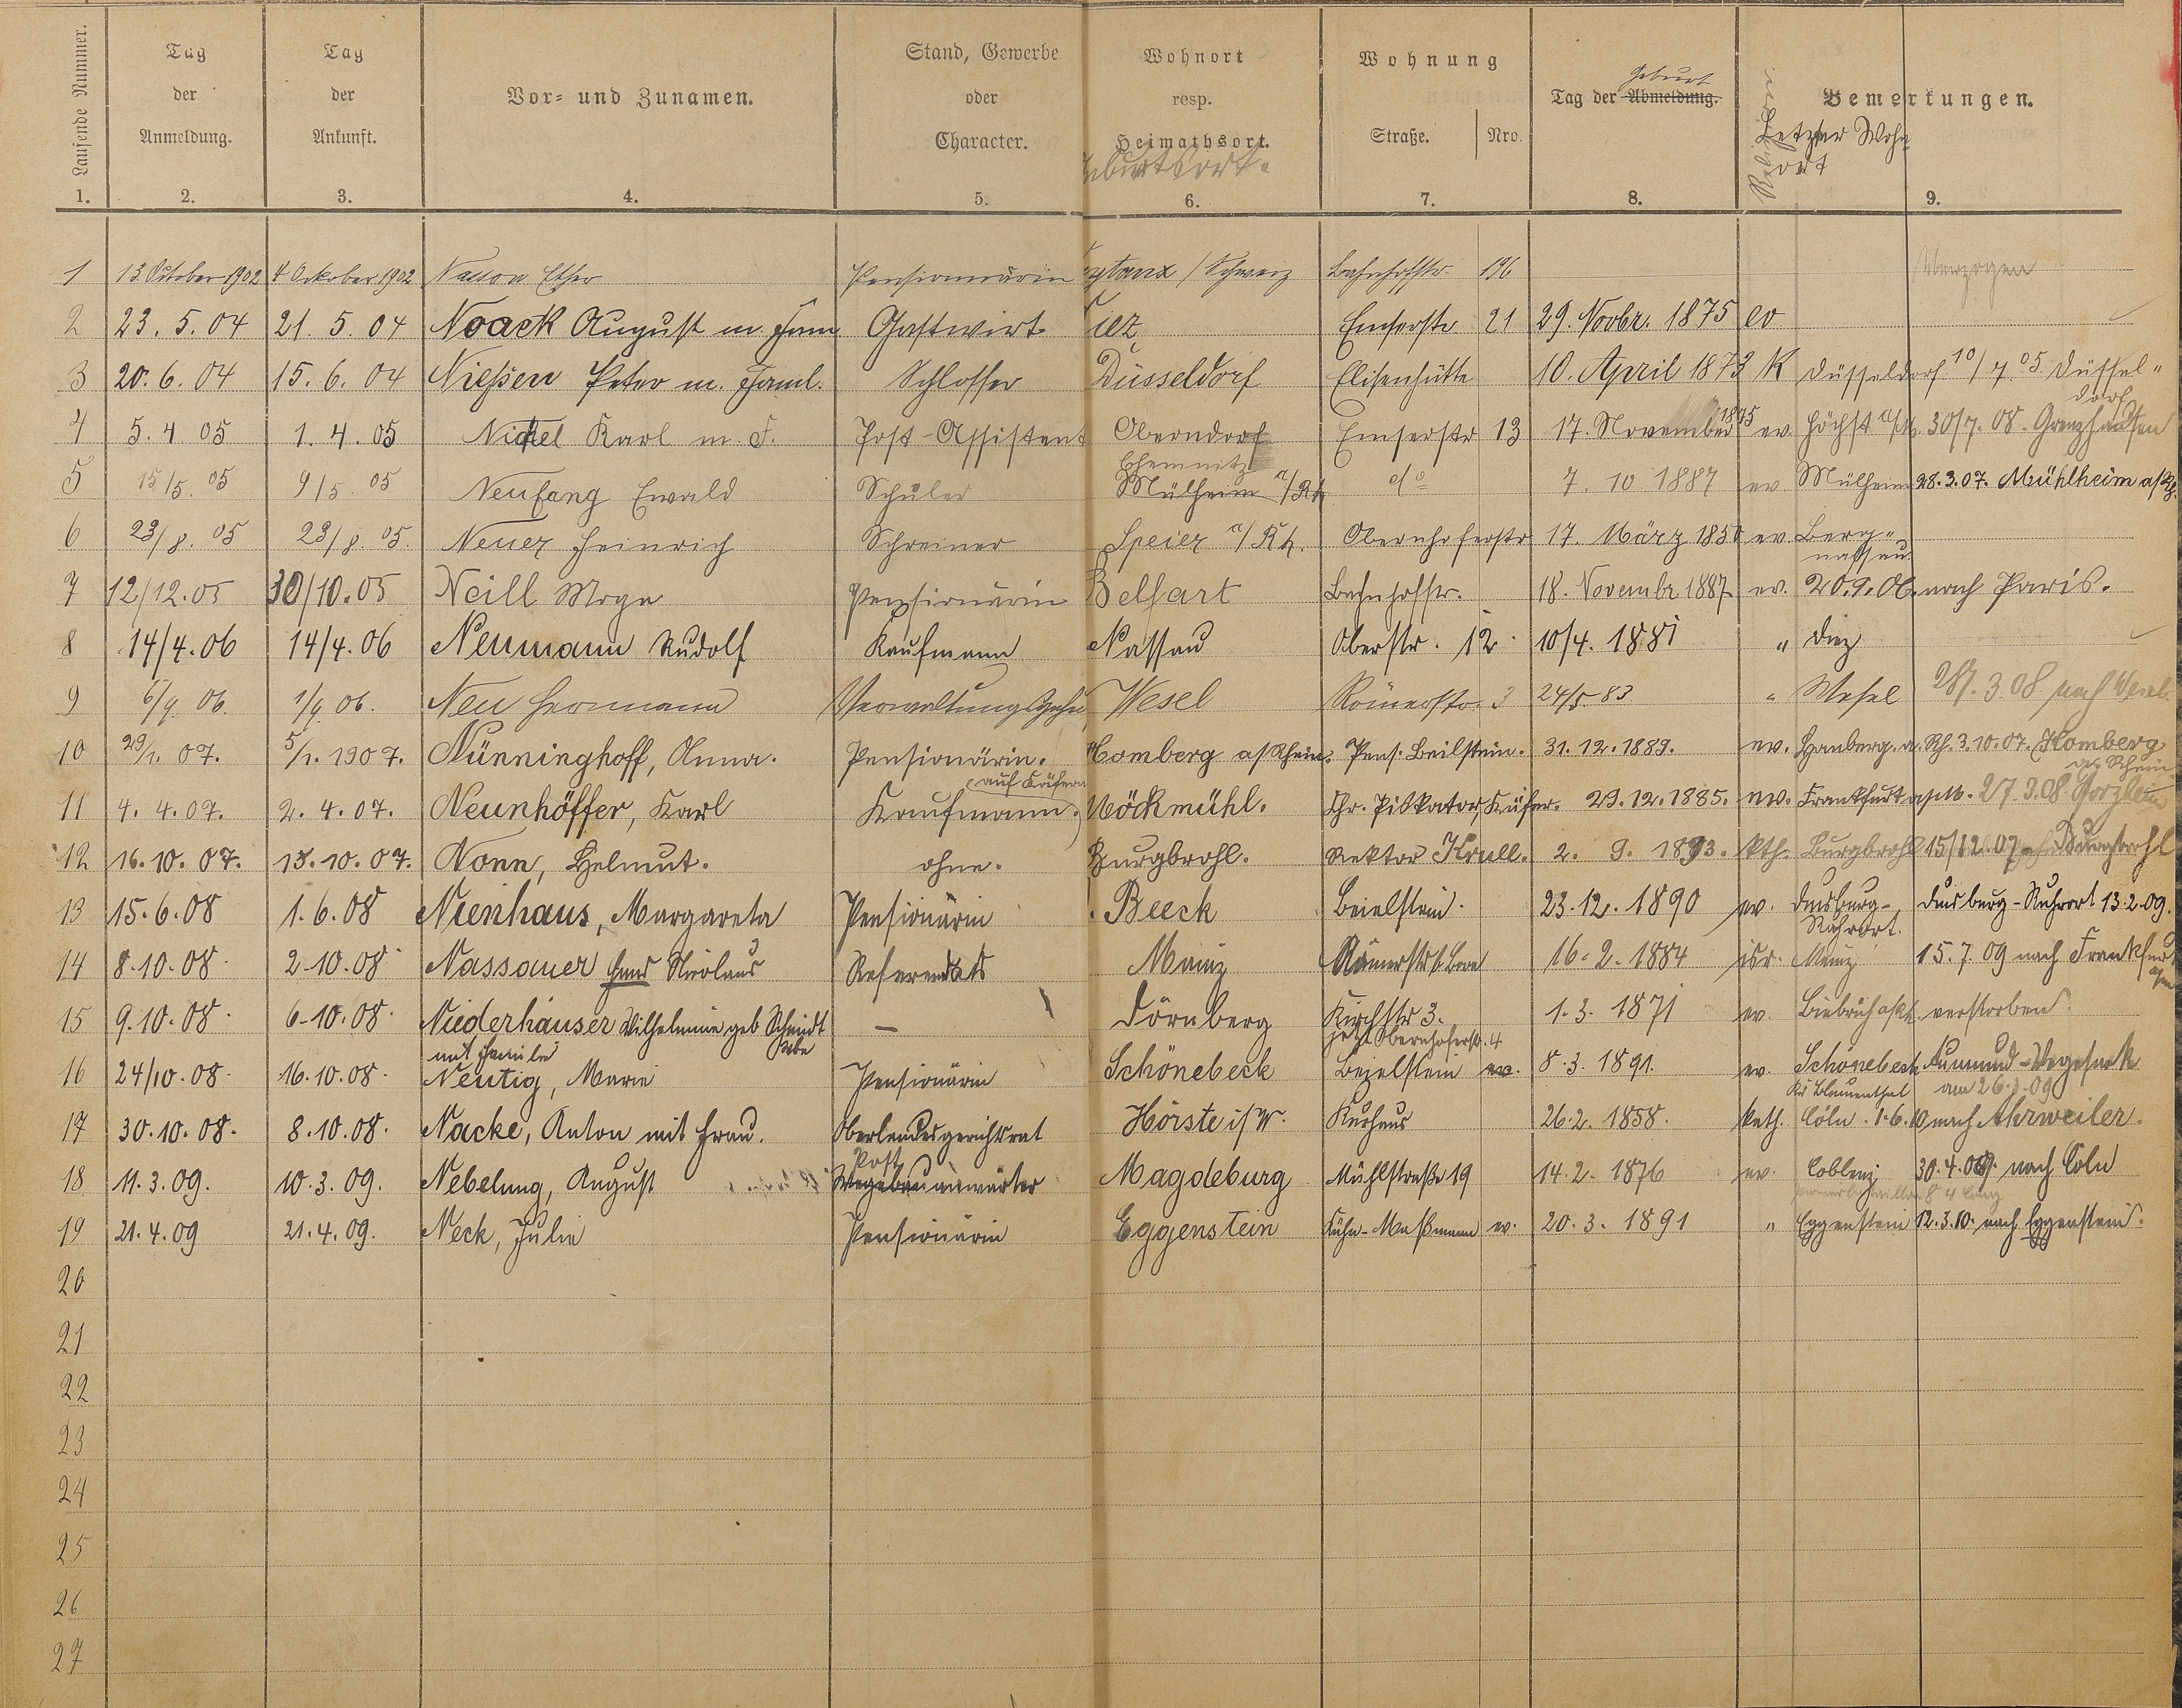 Laufende Nummer. Tag der Anmeldung. Tag der Ankunft. Vor- und Zunamen. Stand, Gewerbe oder Character. Wohnort resp. Heimathsort. Wohnung Straße. Nro. Tag der Abmeldung. Geburt Bemerkungen. Letzter Wohnort
1. 2. 3. 4. 5. 6. 7. 8. 9.
1 13 October 1902 4 October 1902 Pensionärin / Schweiz Bahnhofstr. 196 Verzogen
2 23. 5. 04 21. 5. 04 Noack August m. Fam Gastwirt iez Emserstr 21 29. Novbr. 1875 ev
3 20. 6. 04 15. 6. 04 Nießen Peter m. Faml. Schlosser Düsseldorf Elisenhütte 10. April 1873 K Düsseldorf 10/7. 05 Düssel-
dorf
4 5. 4 05 1. 4. 05 Nickel Karl m. F. Post-Assistent Oberndorf Emserstr 13 17. November 1875 ev. Höchst a/M. 30/7. 08. Grenzhausen
Chemnitz
5 15/5. 05 9/5. 05 Neufang Ewald Schüler Mülheim a/Rh 7. 10 1887 ev Mülheim 28. 3. 07. Mühlheim a/Rh.
6 23/8. 05 23/8. 05. Neuer Heinrich Schreiner Speier a/Rh. Obernhoferstr 17. März 1850 ev. Berg-
nassau
7 12/12. 05 30/10. 05 Neill Pensionärin Belfart Bahnhofstr. 18. Novembr 1887 ev. 20. 9. 06. nach Paris.
8 14/4. 06 14/4. 06 Neumann Rudolf Kaufmann Nassau Oberstr. 12 10/4. 1881 " Diez
9 6/9. 06. 1/9. 06. Neu Hermann Wesel Römerstr. 3 24/5. 83 " Wesel 28. 3. 08. nach Wesel
10 29/1. 07. 5/1. 1907. Nünninghoff, Anna. Pensionärin. Homberg a/Rhein. Pens. Beilstein. 31. 12. 1889. ev. Homberg. a. Rh. 3. 10. 07. Homberg
a/Rhein
auf Käfern
11 4. 4. 07. 2. 4. 07. Neunhöffer, Karl Kaufmann. Möckmühl. Chr. Piskator, Küfer. 29. 12. 1885. ev. Frankfurt a/M. 27. 3. 08.
12 16. 10. 07. 15. 10. 07. Nonn, Helmut. ohne. Burgbrohl. Rektor Krull. 2. 9. 1893. kth. Burgbrohl 15/12. 07 Burgbrohl
13 15. 6. 08 1. 6. 08 Nienhaus, Margareta Pensionärin Beeck Beielstein. 23. 12. 1890 ev. Duisburg-
Ruhrort. Duisburg-Ruhrort 13. 2. 09.
14 8. 10. 08. 2. 10. 08 Nassauer Hans Nicolaus Referendar Mainz 16. 2. 1884 isr. Mainz 15. 7. 09 nach Frankfurt
a/M
15 9. 10. 08. 6. 10. 08. Niederhäuser Wilhelmine geb Schmidt Wbe — Dörnberg Kirchstr 3. 1. 3. 1871 ev. Biebrich a/Rh. verstorben.
mit Familie jetzt Obernhoferstr. 4
16 24/10. 08. 16. 10. 08. Neutig, Marie Pensionärin Schönebeck Beielstein ev. 8. 3. 1891. ev. Schönebeck Aumund-Vegesack
Kr Blumenthal am 26. 3. 09
17 30. 10. 08. 8. 10. 08. Nacke, Anton mit Frau. Oberlandesgerichtsrat Hörste i/W. Kurhaus 26. 2. 1858. kath. Cöln. 1. 6. 10 nach Ahrweiler.
Post
18 11. 3. 09. 10. 3. 09. Nebelung, August Wegebauanwärter Magdeburg Mühlstraße 19 14. 2. 1876 ev. Coblenz 30. 4. 09. nach Coln
19 21. 4. 09 21. 4. 09. Neck, Julie Pensionärin Eggenstein Kuhn-Maßmann ev. 20. 3. 1891 " Eggenstein 12. 3. 10. nach Eggenstein.
20
21
22
23
24
25
26
27